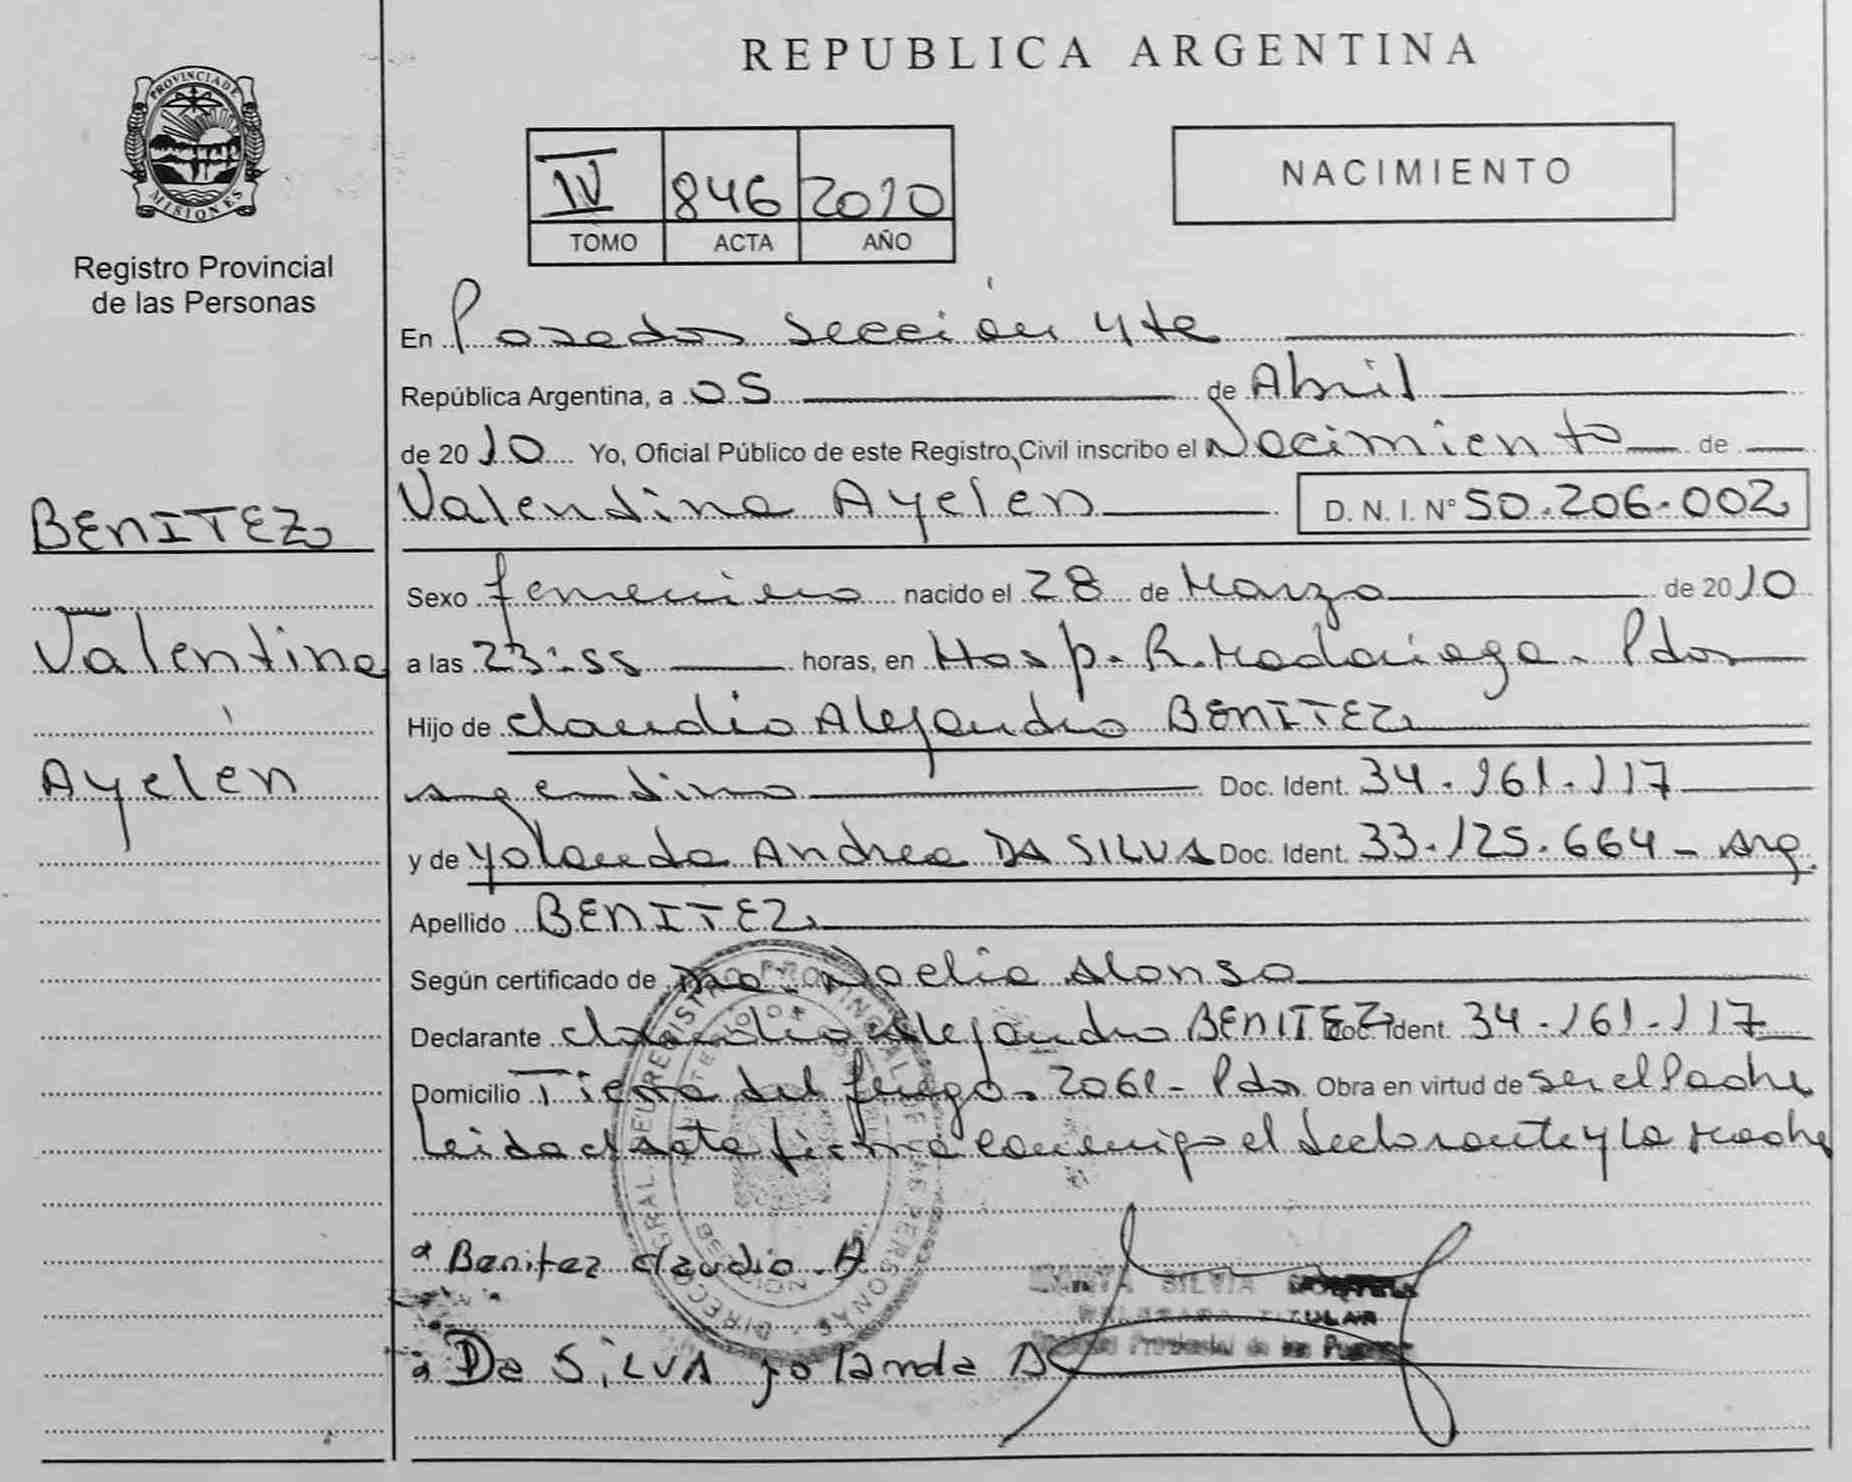 REPUBLICA ARGENTINA
PROVINCIA DE
MISIONES
Registro Provincial
de las Personas
IV 846 2010
TOMO ACTA AÑO
NACIMIENTO
BENITEZ
Valentina
Ayelén
En Posadas sección 4ta
República Argentina, a 05 de Abril
de 2010 Yo, Oficial Público de este Registro Civil inscribo el Nacimiento de
Valentina Ayelen D. N. I. N° 50.206.002
Sexo femenino nacido el 28 de Marzo de 2010
a las 23:55 horas, en Hosp. R. Madariaga. Pdas
Hijo de Claudio Alejandro BENITEZ
argentino Doc. Ident. 34.161.117
y de Yolanda Andrea DA SILVA Doc. Ident. 33.125.664 - Arg.
Apellido BENITEZ
Según certificado de Dra. Noelia Alonso
Declarante Claudio Alejandro BENITEZ Doc. Ident. 34.161.117
Domicilio Tierra del fuego. 2061 - Pdas Obra en virtud de ser el Padre
Leida el acta firma conmigo el declarante y la Madre
Benitez claudio. A
SILVIA
TITULAR
Provincial de las
Da SiLVA yolanda A